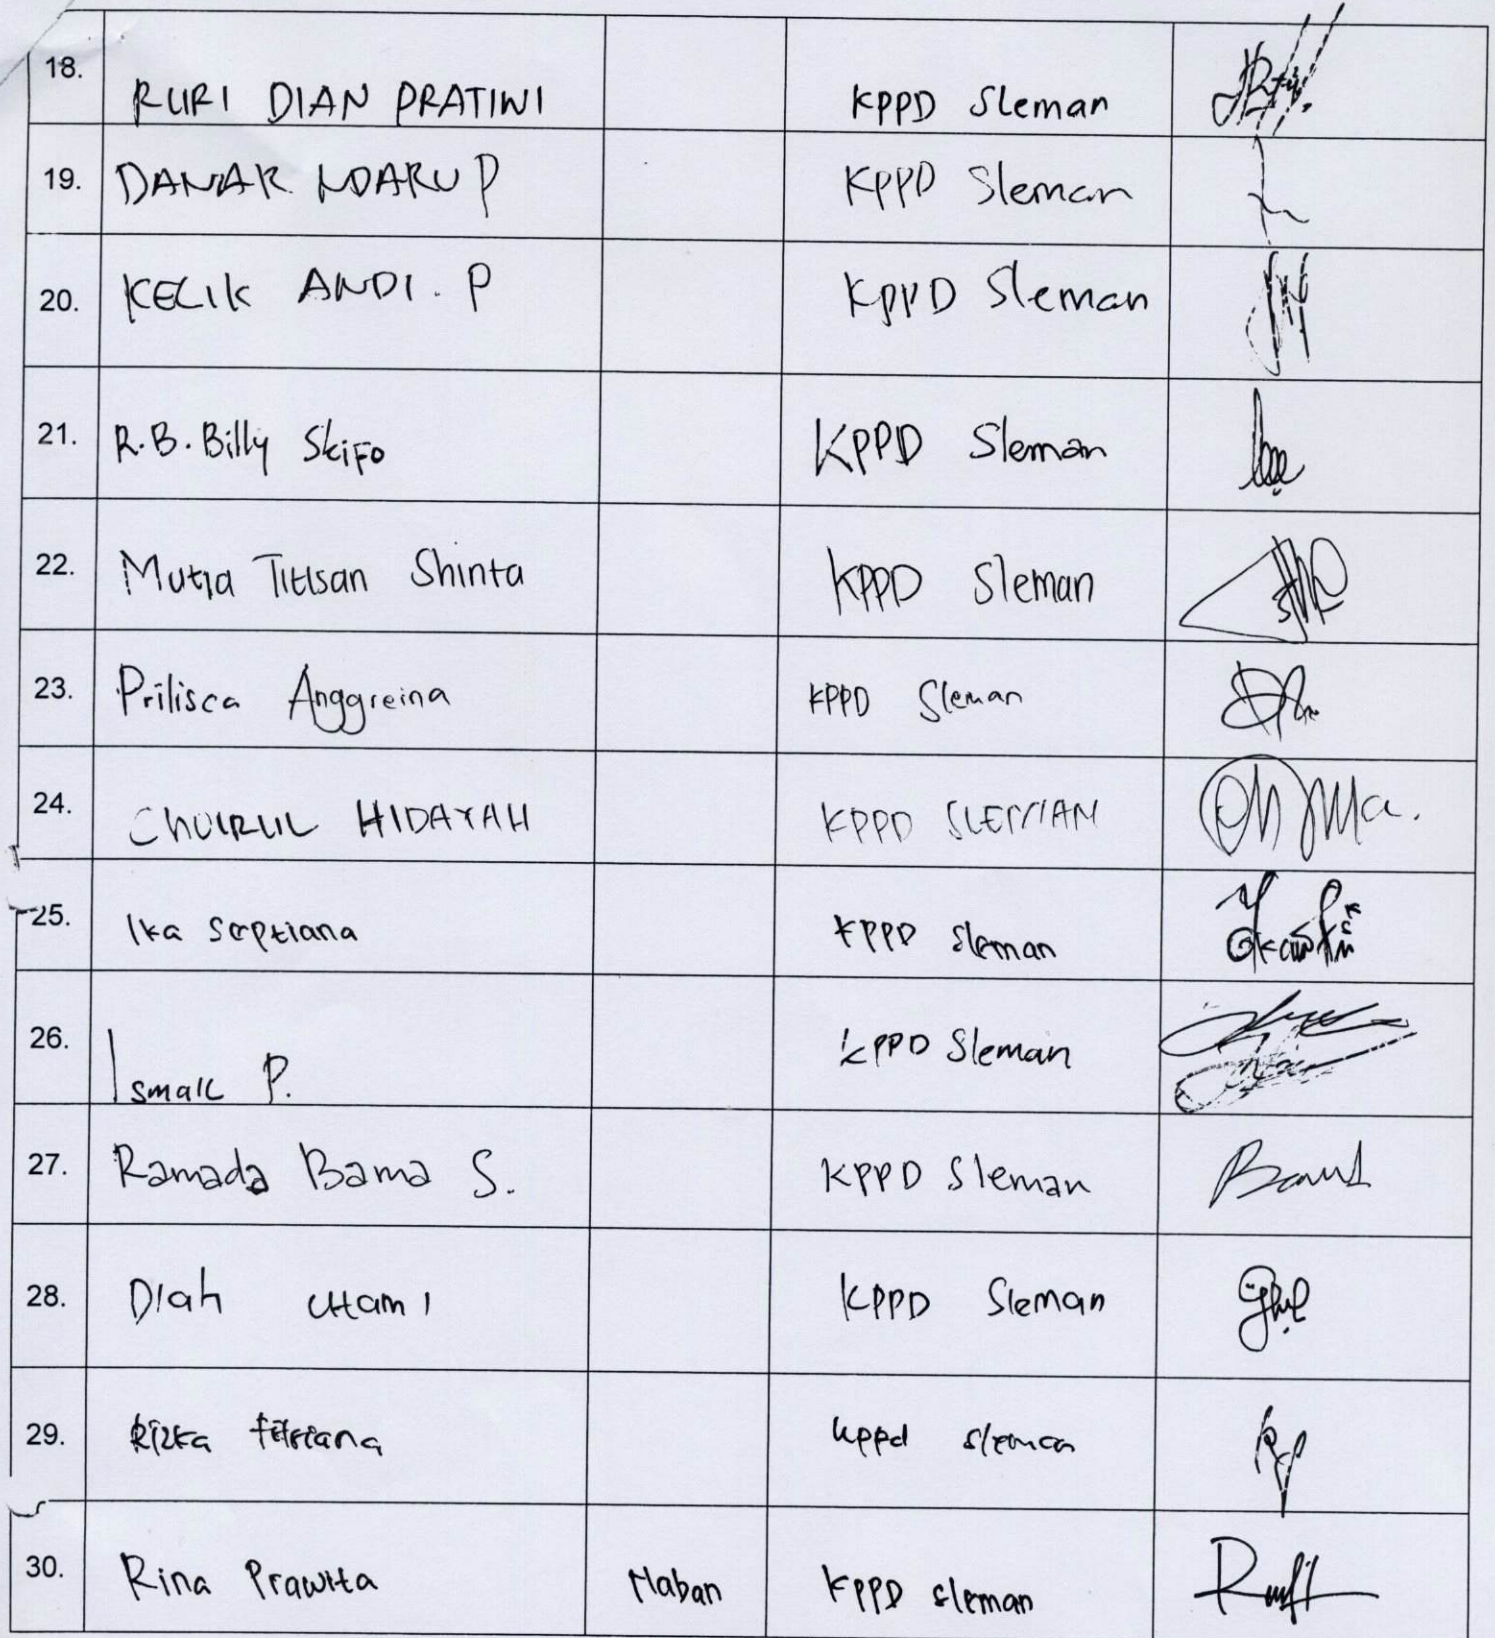 18. RURI DIAN PRATIWI KPPD Sleman
19. DANAR NDARU P KPPD Sleman
20. KELIK ANDI. P KPPD Sleman
21. R.B. Billy Skifo KPPD Sleman
22. Mutia Titisan Shinta KPPD Sleman
23. Prilisca Anggreina KPPD Sleman
24. CHOIRUL HIDAYAH KPPD SLEMAN
25. Ika Septiana KPPD Sleman
26. Ismail P. KPPD Sleman
27. Ramada Bama S. KPPD Sleman
28. Diah Utami KPPD Sleman
29. Rizka Fitriana kppd sleman
30. Rina Prawita Naban KPPD Sleman